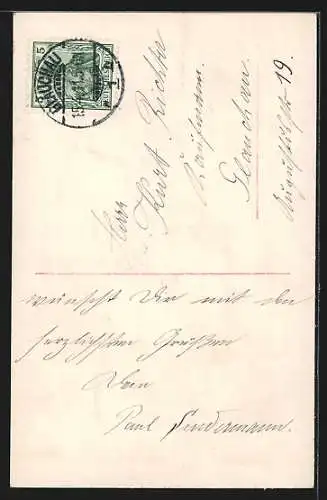 5
GLAUCHAU
Herrn
Kurt Richter
Kaufmann.
Glauchau
Auguststraße 19.
wünscht Dir mit den
herzlichsten Grüßen
Dein
Paul Lindermann.